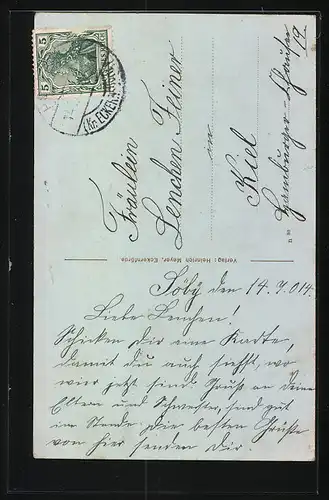 5 5
(Kr. ECKERNFÖRDE)
14.
Fräulein
Lenchen Feiner
in
Kiel
Hamburger-Chaussee
17
D 90
Verlag Heinrich Meyer, Eckernförde
Söby den 14.7.014.
Liebe Lenchen!
Schicken Dir eine Kadte,
damit du auch siehst, wo
wier jetzt sind. Gruß an Deine
Eltern und Schwester, sind gut
im Stande. Die besten Grüße
von hier senden Dir.